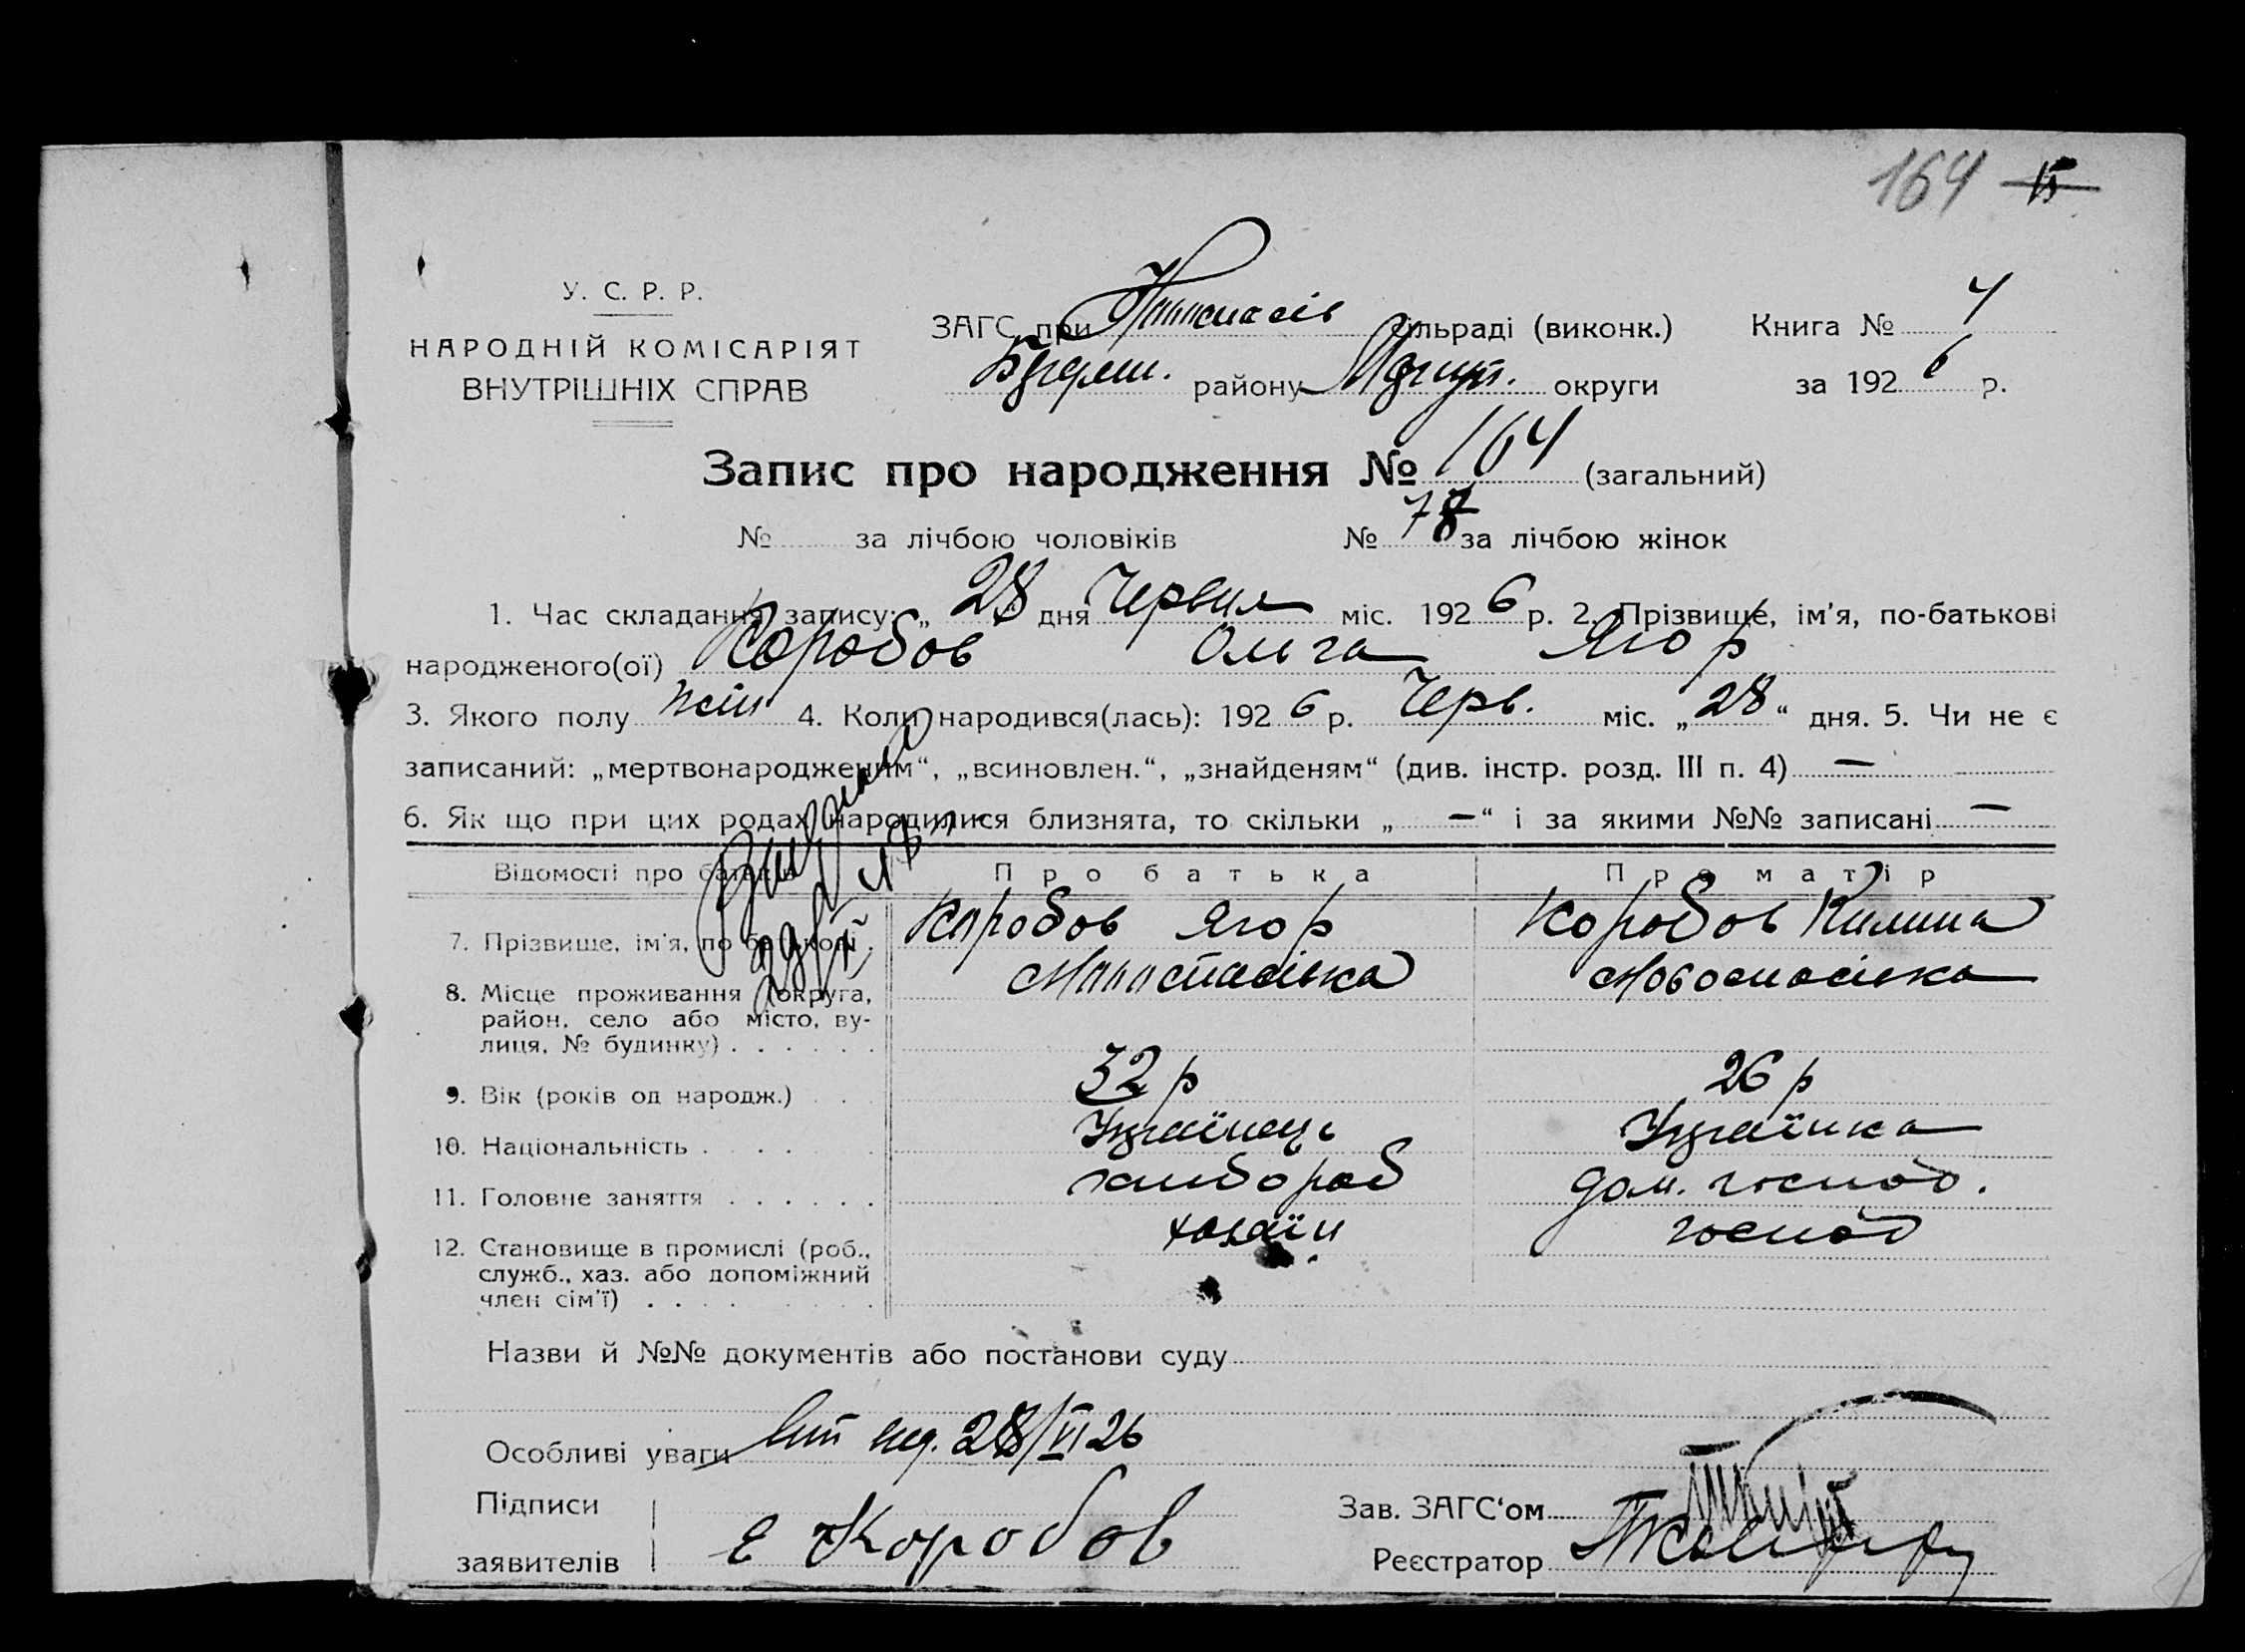 164 15
У. С. Р. Р.
НАРОДНІЙ КОМІСАРІЯТ
ВНУТРІШНІХ СПРАВ
ЗАГС при сільраді (виконк.) Книга № 4
району округи за 1926 р.
Запис про народження № 164 (загальний)
№ за лічбою чоловіків № 78 за лічбою жінок
1. Час складання запису: „ 28 дня Червня міс. 1926 р. 2. Прізвище, ім'я, по-батькові
народженого(ої) Коробов Ольга Ягор
3. Якого полу жін 4. Коли народився(лась): 1926 р. Черв. міс. „28“ дня. 5. Чи не є
записаний: „мертвонародженим“, „всиновлен.“, „знайденям“ (див. інстр. розд. III п. 4) —
6. Як що при цих родах народилися близнята, то скільки „ —“ і за якими №№ записані —
Відомості про батьків Про батька Про матір
7. Прізвище, ім'я, по батькові . Коробов Ягор Коробов Килина
8. Місце проживання (округа, Новоспасівка Новоспасівка
район, село або місто, ву-
лиця, № будинку) . . . . . .
9. Вік (років од народж.) . . 32 р 26 р
10. Національність . . . . . Українець Українка
11. Головне заняття . . . . . . хлібороб дом. господ.
12. Становище в промислі (роб., хазаїн господ
служб., хаз. або допоміжний
член сім'ї) . . . .
Назви й №№ документів або постанови суду
Особливі уваги 28/VI 26
Підписи
заявителів Е Коробов
Зав. ЗАГС'ом
Реєстратор